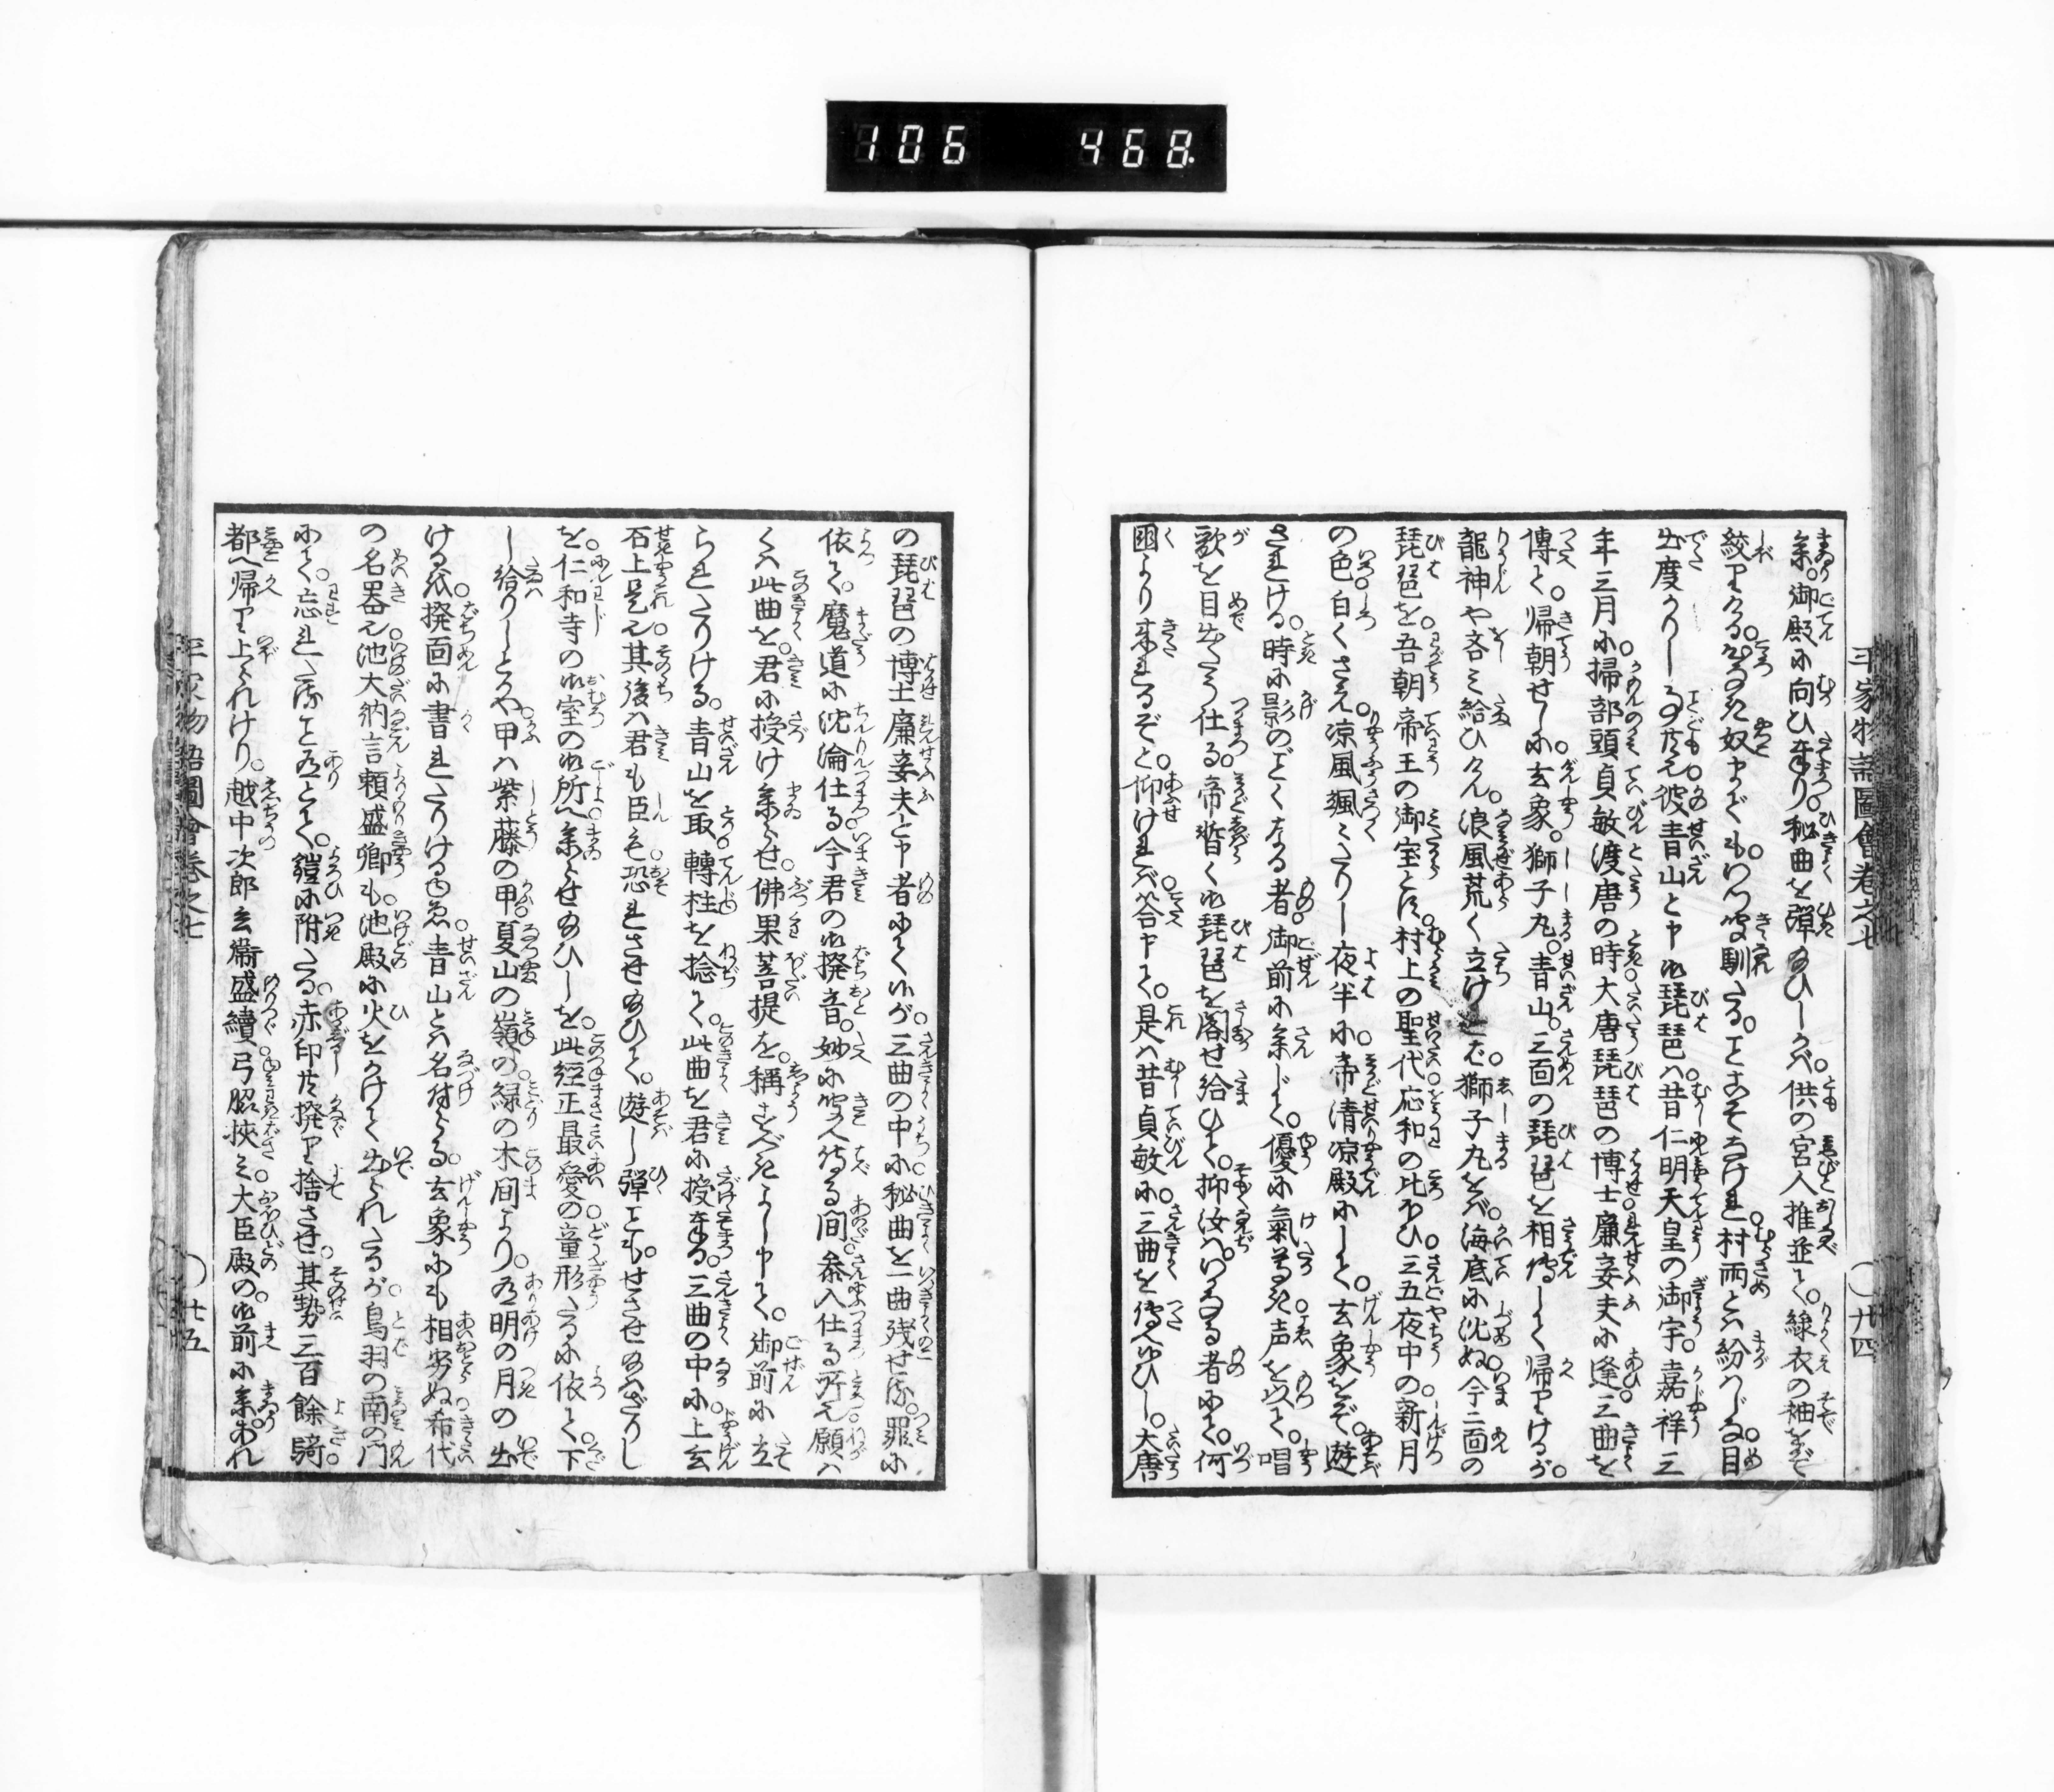 106 468
平家物語圖會卷之七 〇廿四
参。御殿に向ひ奉り秘曲を弾給ひしかば。供の宮人推並て。緑衣の袖をぞ
絞りける。
年三月に。掃部頭貞敏渡唐の時。大唐琵琶の博士廉妾夫に逢。三曲を
傳て。帰朝せしに。玄象。獅子丸。青山。三面の琵琶を相傳して帰りけるが。
龍神や吝み給ひけん。浪風荒く立ければ。獅子丸をば。海底に沈ぬ。今二面の
琵琶を。吾朝帝王の御宝とす。村上の聖代応和の比ほひ。三五夜中の新月
の色。白くさえ。凉風颯々たりし夜半に。帝清凉殿にして。玄象をぞ。遊
されける。時に影のごくなる者。御前に参じて。優に氣高き声を以て。唱
歌を目出たう仕る。帝暫く御琵琶を閣せ給ひて。抑汝は。いかなる者にて。何
国より来れるぞと。仰ければ。答申て。是は昔貞敏に。三曲を傳へ候ひし。大唐
の琵琶の博士廉妾夫と申者にて候が。三曲の中に。秘曲を一曲残せる。罪に
依て。魔道に沈淪仕る。今君の御撥音。妙に聞え侍る間。参入仕る所也。願は
くは此曲を。君に授け参らせ。佛果菩提を。稱すべきよし申て。御前に立
られたりける。青山を取。轉柱を捻て。此曲を君に授奉る。三曲の中に。上玄
石上是也。其後は君も臣も。恐れさせ給ひて。遊し弾事も。せさせ給はざりし
を。仁和寺の御室の御所へ参らせ給ひしを。此経正最愛の童形たるに依て。下
し給りしとかや。甲は紫藤の甲。夏山の嶺の。緑の木間より。有明の月の出
けるを。撥面に書れたりける故。青山とは名付たる。玄象にも相劣ぬ。希代
の名器也。池大納言頼盛卿も。池殿に火をかけて出られたるが。鳥羽の南の門
にて。忘れたる事有とて。鎧に附たる。赤印共撥り捨させ。其勢三百餘騎。
都へ帰り上られけり。越中次郎兵衞盛續。弓脇挾み。大臣殿の。御前に参。あれ
平家物語圖會卷之七 〇廿五